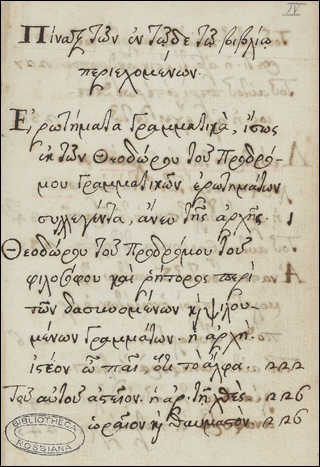 IV
Πίναξ τῶν ἐν τῷδε τῷ βιβλίῳ
περιεχομένων.
Ἐρωτήματα Γραμματικὰ, ἴσως
ἐκ τῶν Θεοδώρου τοῦ Προδρό-
μου Γραμματικῶν ἐρωτημάτων
συλλεγέντα, ἄνευ τῆς ἀρχῆς. 1
Θεοδώρου τοῦ Προδρόμου τοῦ
φιλοσόφου καὶ ῥήτορος περὶ
τῶν δασυνομένων κỳ ψιλου-
μένων Γραμμάτων. ἡ ἀρχὴ.
ἰστέον ὦ παῖ, ὅτι τὸ ἄλφα. 222
Τοῦ αὐτοῦ ἡ ἀρ. τῆλθὲς 226
ὡραῖον κỳ θαυμαστὸν. 226
BIBLIOTHECA
ROSSIANA